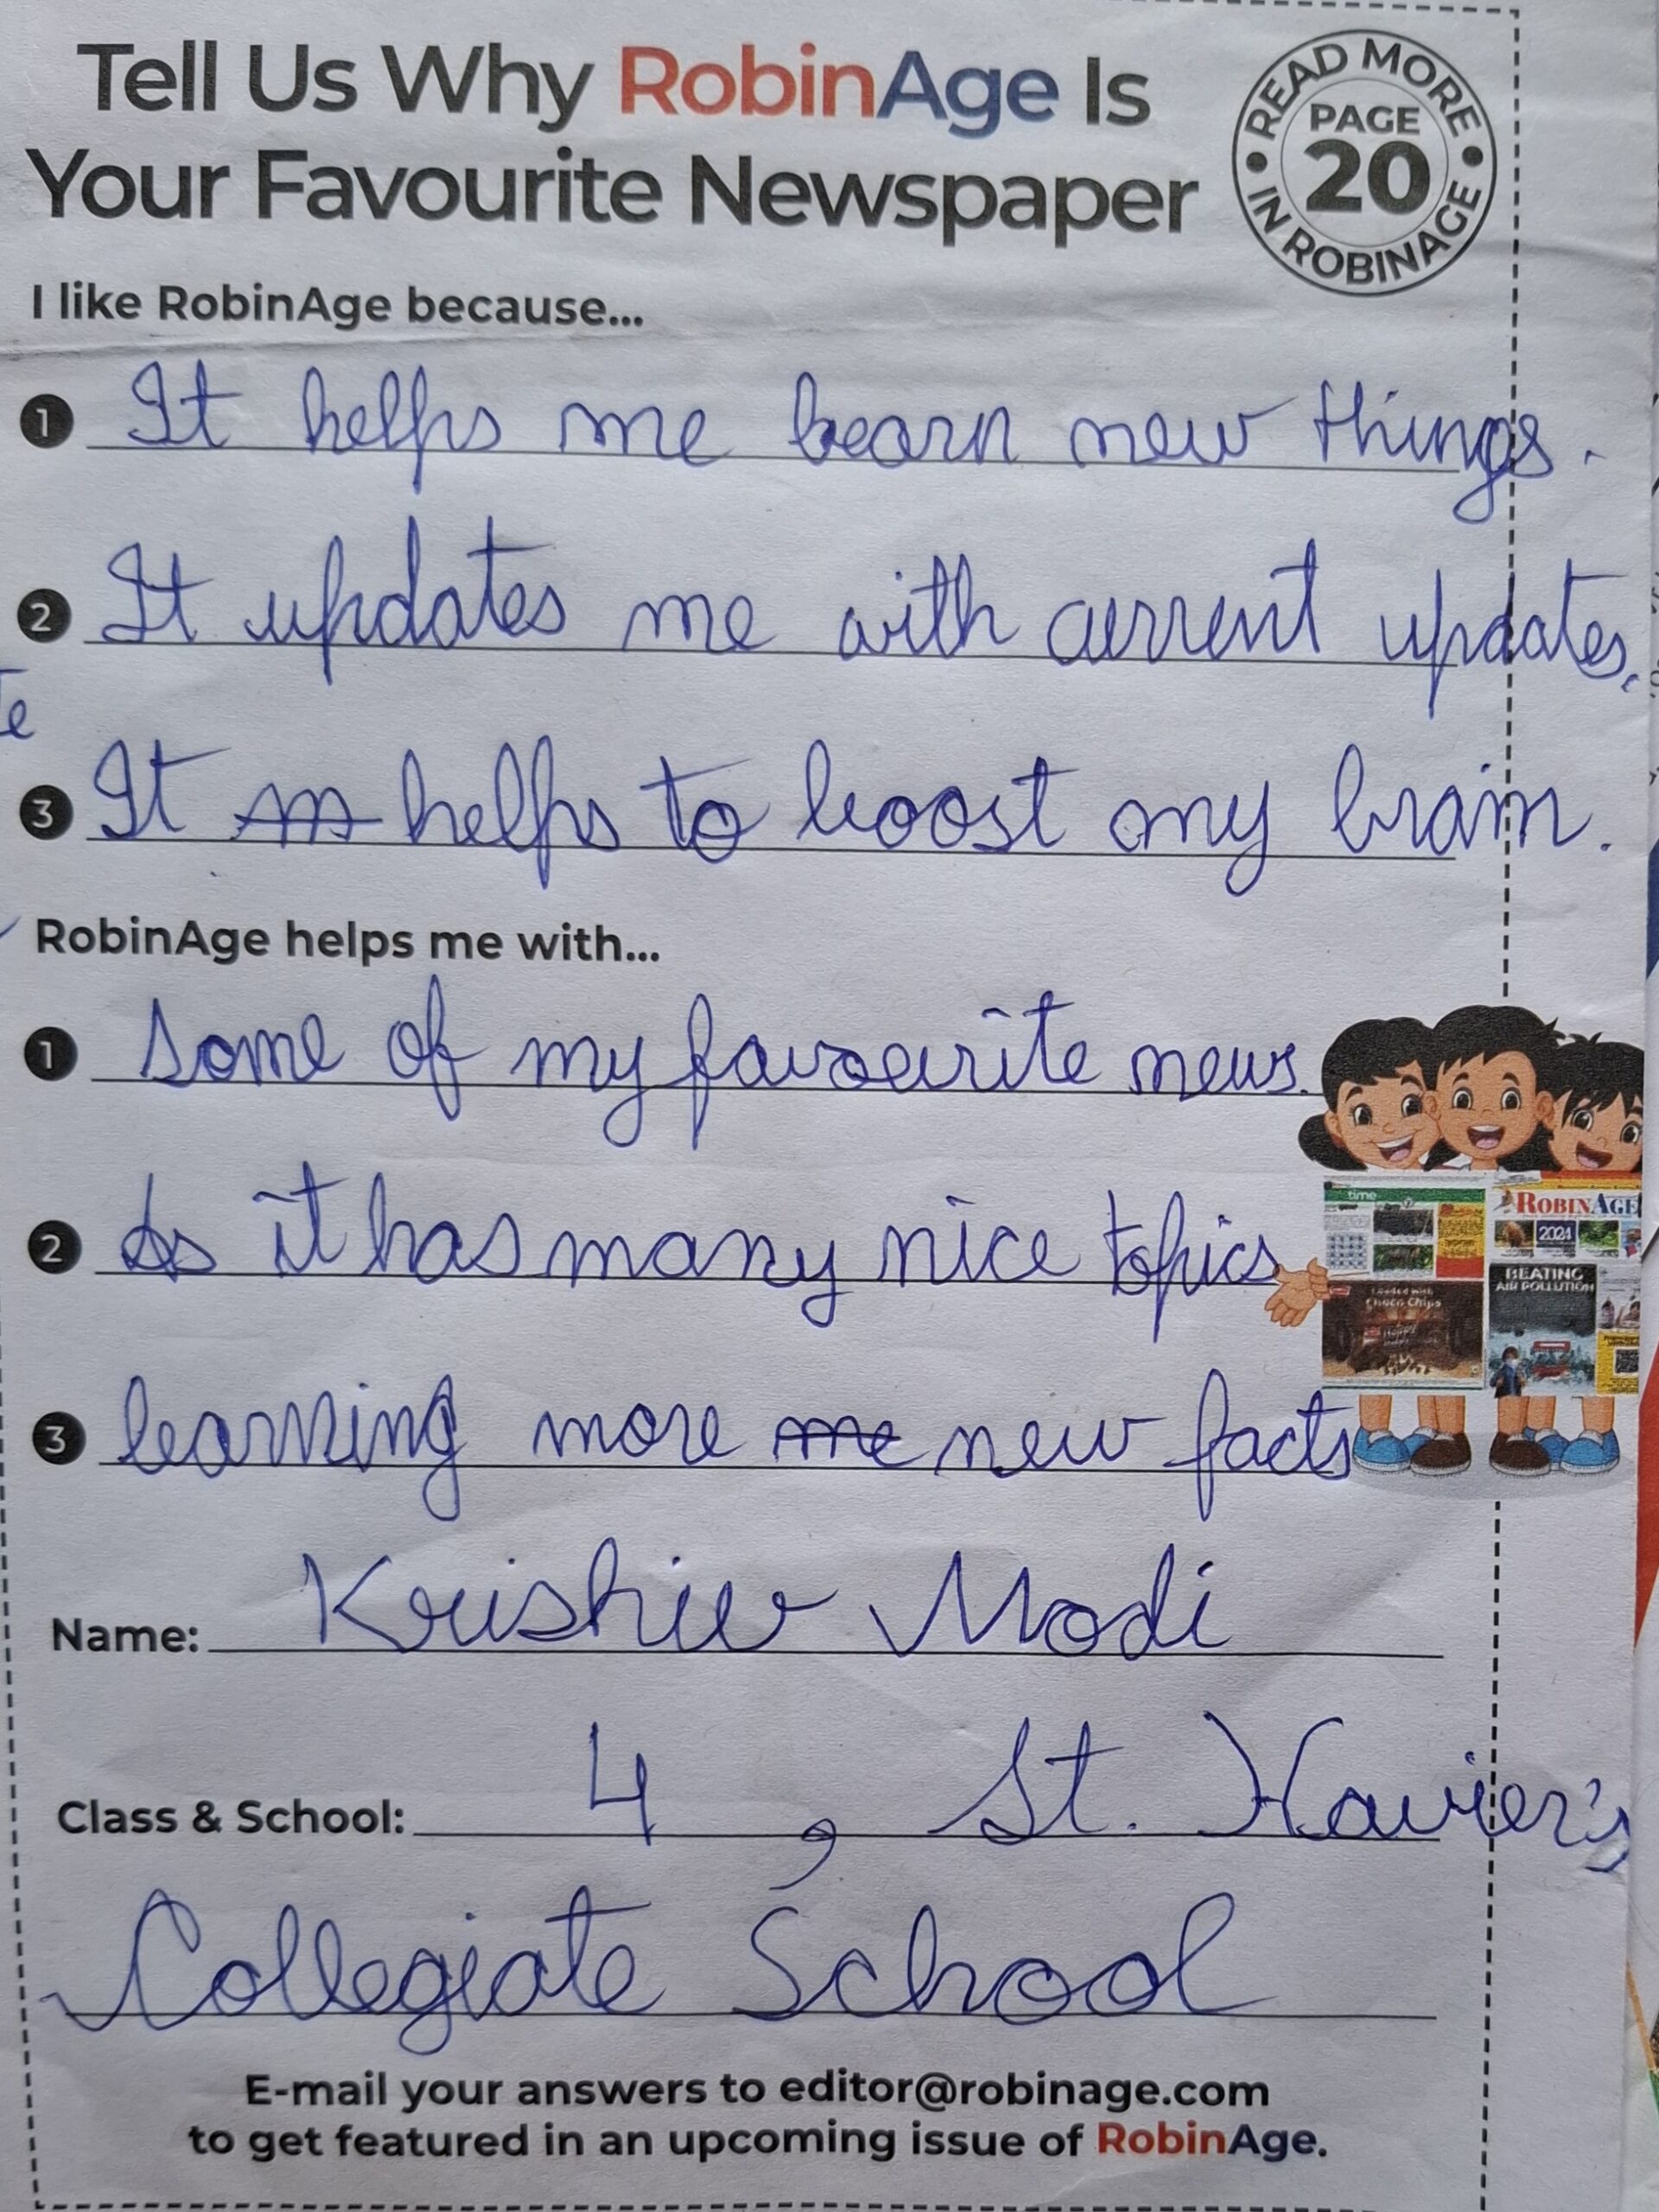 Tell Us Why RobinAge Is
Your Favourite Newspaper
READ MORE
PAGE
20
IN ROBINAGE
I like RobinAge because...
1 It helps me learn new things.
2 It updates me with current updates.
3 It helps to boost my brain.
RobinAge helps me with...
1 some of my favourite news.
2 As it has many nice topics
3 learning more me new facts
time
ROBINAGE
2024
BEATING
AIR POLLUTION
Loaded with
Choco Chips
Name: Krishiv Modi
Class & School: 4, St. Xavier's
Collegiate School
E-mail your answers to editor@robinage.com
to get featured in an upcoming issue of RobinAge.